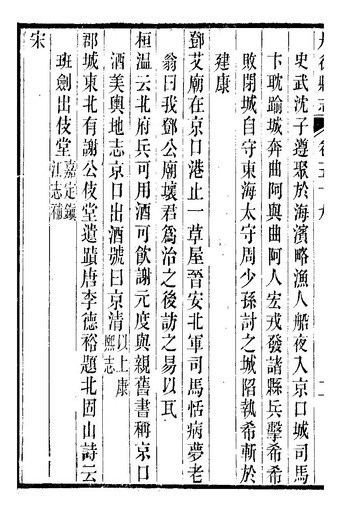 丹徒縣志 卷五十九
史武沈子遵聚於海濱略漁人船夜入京口城司馬
卞耽踰城奔曲阿與曲阿人宏戎發諸縣兵擊希希
敗閉城自守東海太守周少孫討之城陷執希斬於
建康
鄧艾廟在京口港止一草屋晉安北軍司馬恬病夢老
翁曰我鄧公廟壞君爲治之後訪之易以瓦
桓溫云北府兵可用酒可飲謝元度與親舊書稱京口
酒美輿地志京口出酒號曰京清以上康熙志
郡城東北有謝公伎堂遺蹟唐李德裕題北固山詩云
班劍出伎堂嘉定鎮江志補
宋